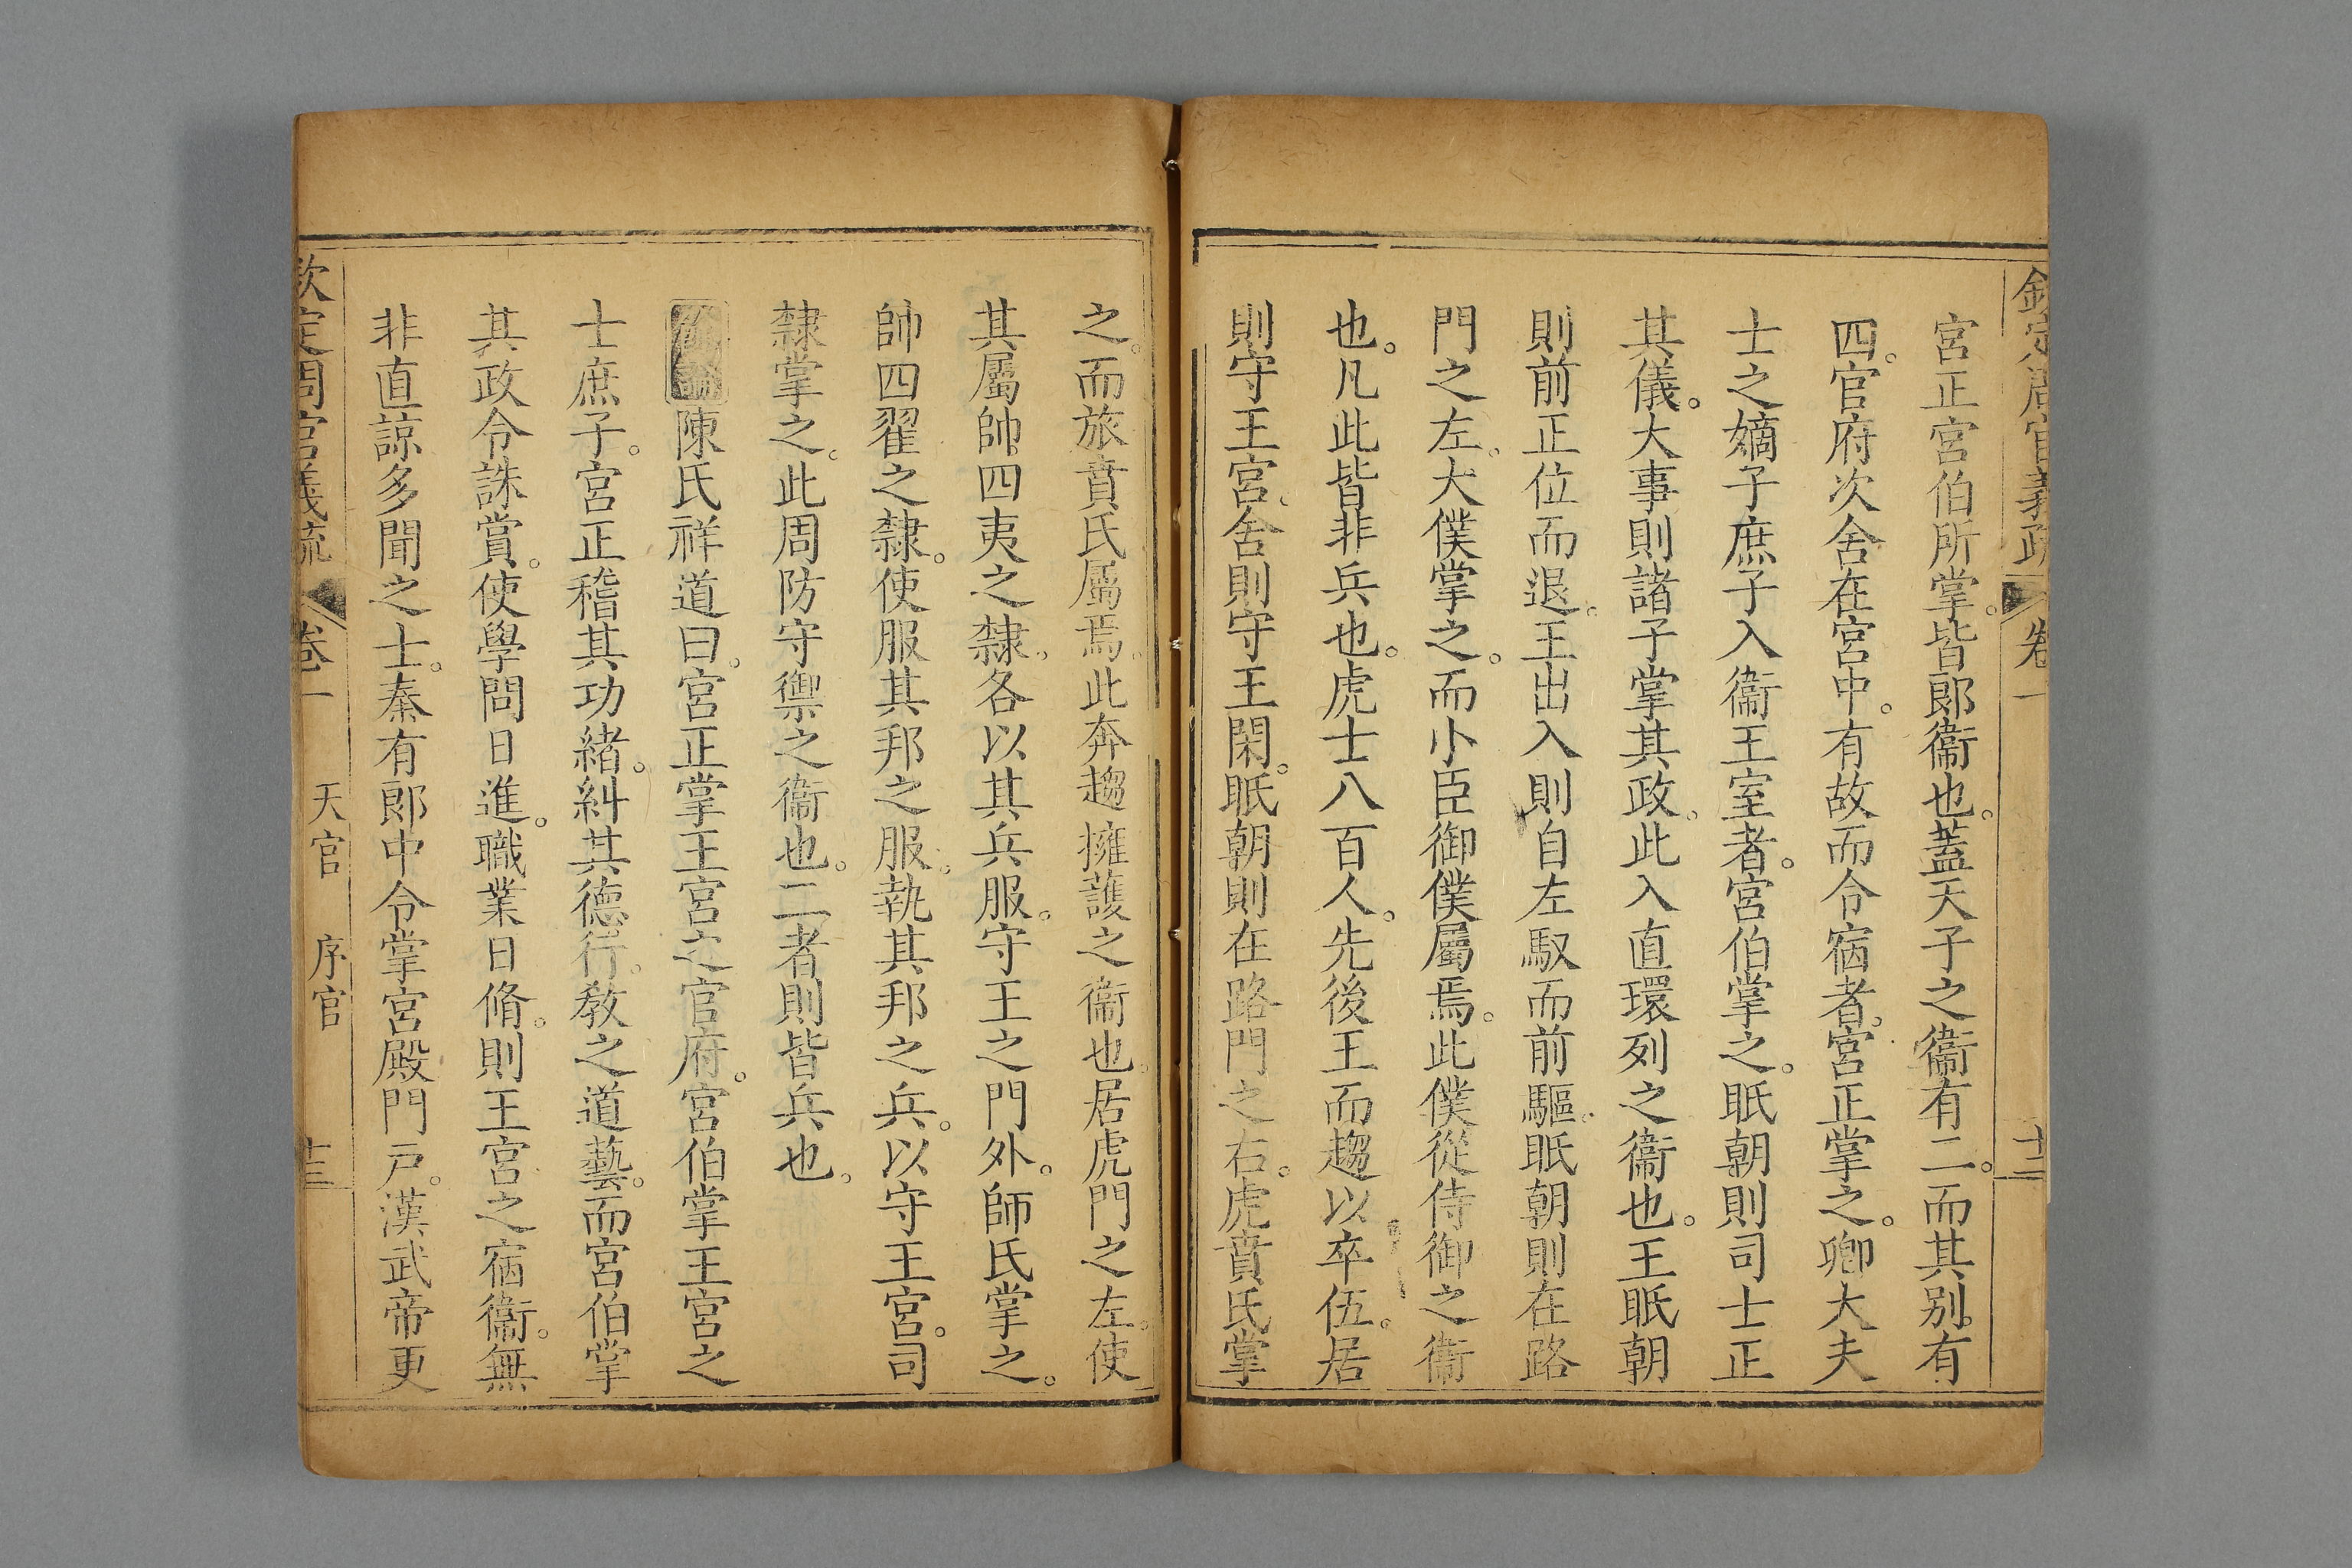 欽定周官義疏 卷一 十二
宮正宮伯所掌。皆郎衞也。蓋天子之衞有二。而其别。有
四。官府次舍在宮中。有故而令宿者。宮正掌之。卿大夫
士之嫡子庶子入衞王室者。宮伯掌之。眂朝則司士正
其儀。大事則諸子掌其政。此入直環列之衞也。王眂朝
則前正位而退。王出入則自左馭而前驅。眂朝則在路
門之左。大僕掌之。而小臣御僕屬焉。此僕從侍御之衞
也。凡此皆非兵也。虎士八百人。先後王而趨以卒伍。居
則守王宮。舍則守王閑。眂朝則在路門之右。虎賁氏掌
之。而旅賁氏屬焉。此奔趨擁護之衞也。居虎門之左。使
其屬帥四夷之隸。各以其兵服。守王之門外。師氏掌之。
帥四翟之隸。使服其邦之服。執其邦之兵。以守王宮。司
隸掌之。此周防守禦之衞也。二者則皆兵也。
陳氏祥道曰。宮正掌王宮之官府。宮伯掌王宮之
士庶子。宮正稽其功緒。糾其德行。敎之道藝。而宮伯掌
其政令誅賞。使學問日進。職業日脩。則王宮之宿衞。無
非直諒多聞之士。秦有郎中令掌宮殿門戸。漢武帝更
欽定周官義疏 卷一 天官 序官 十三